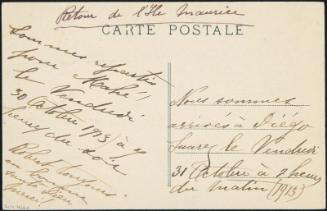 Retour de l'Ile Maurice
CARTE POSTALE
Sommes repartis
pour Mahé,
le Vendredi
30 Octobre (1913) à 5
heures du soir
Robert toujours
en
santé Dieu
merci
Nous sommes
arrivés à Diégo
Suarez le Vendredi
31 Octobre à 8 heures
du matin (1913)